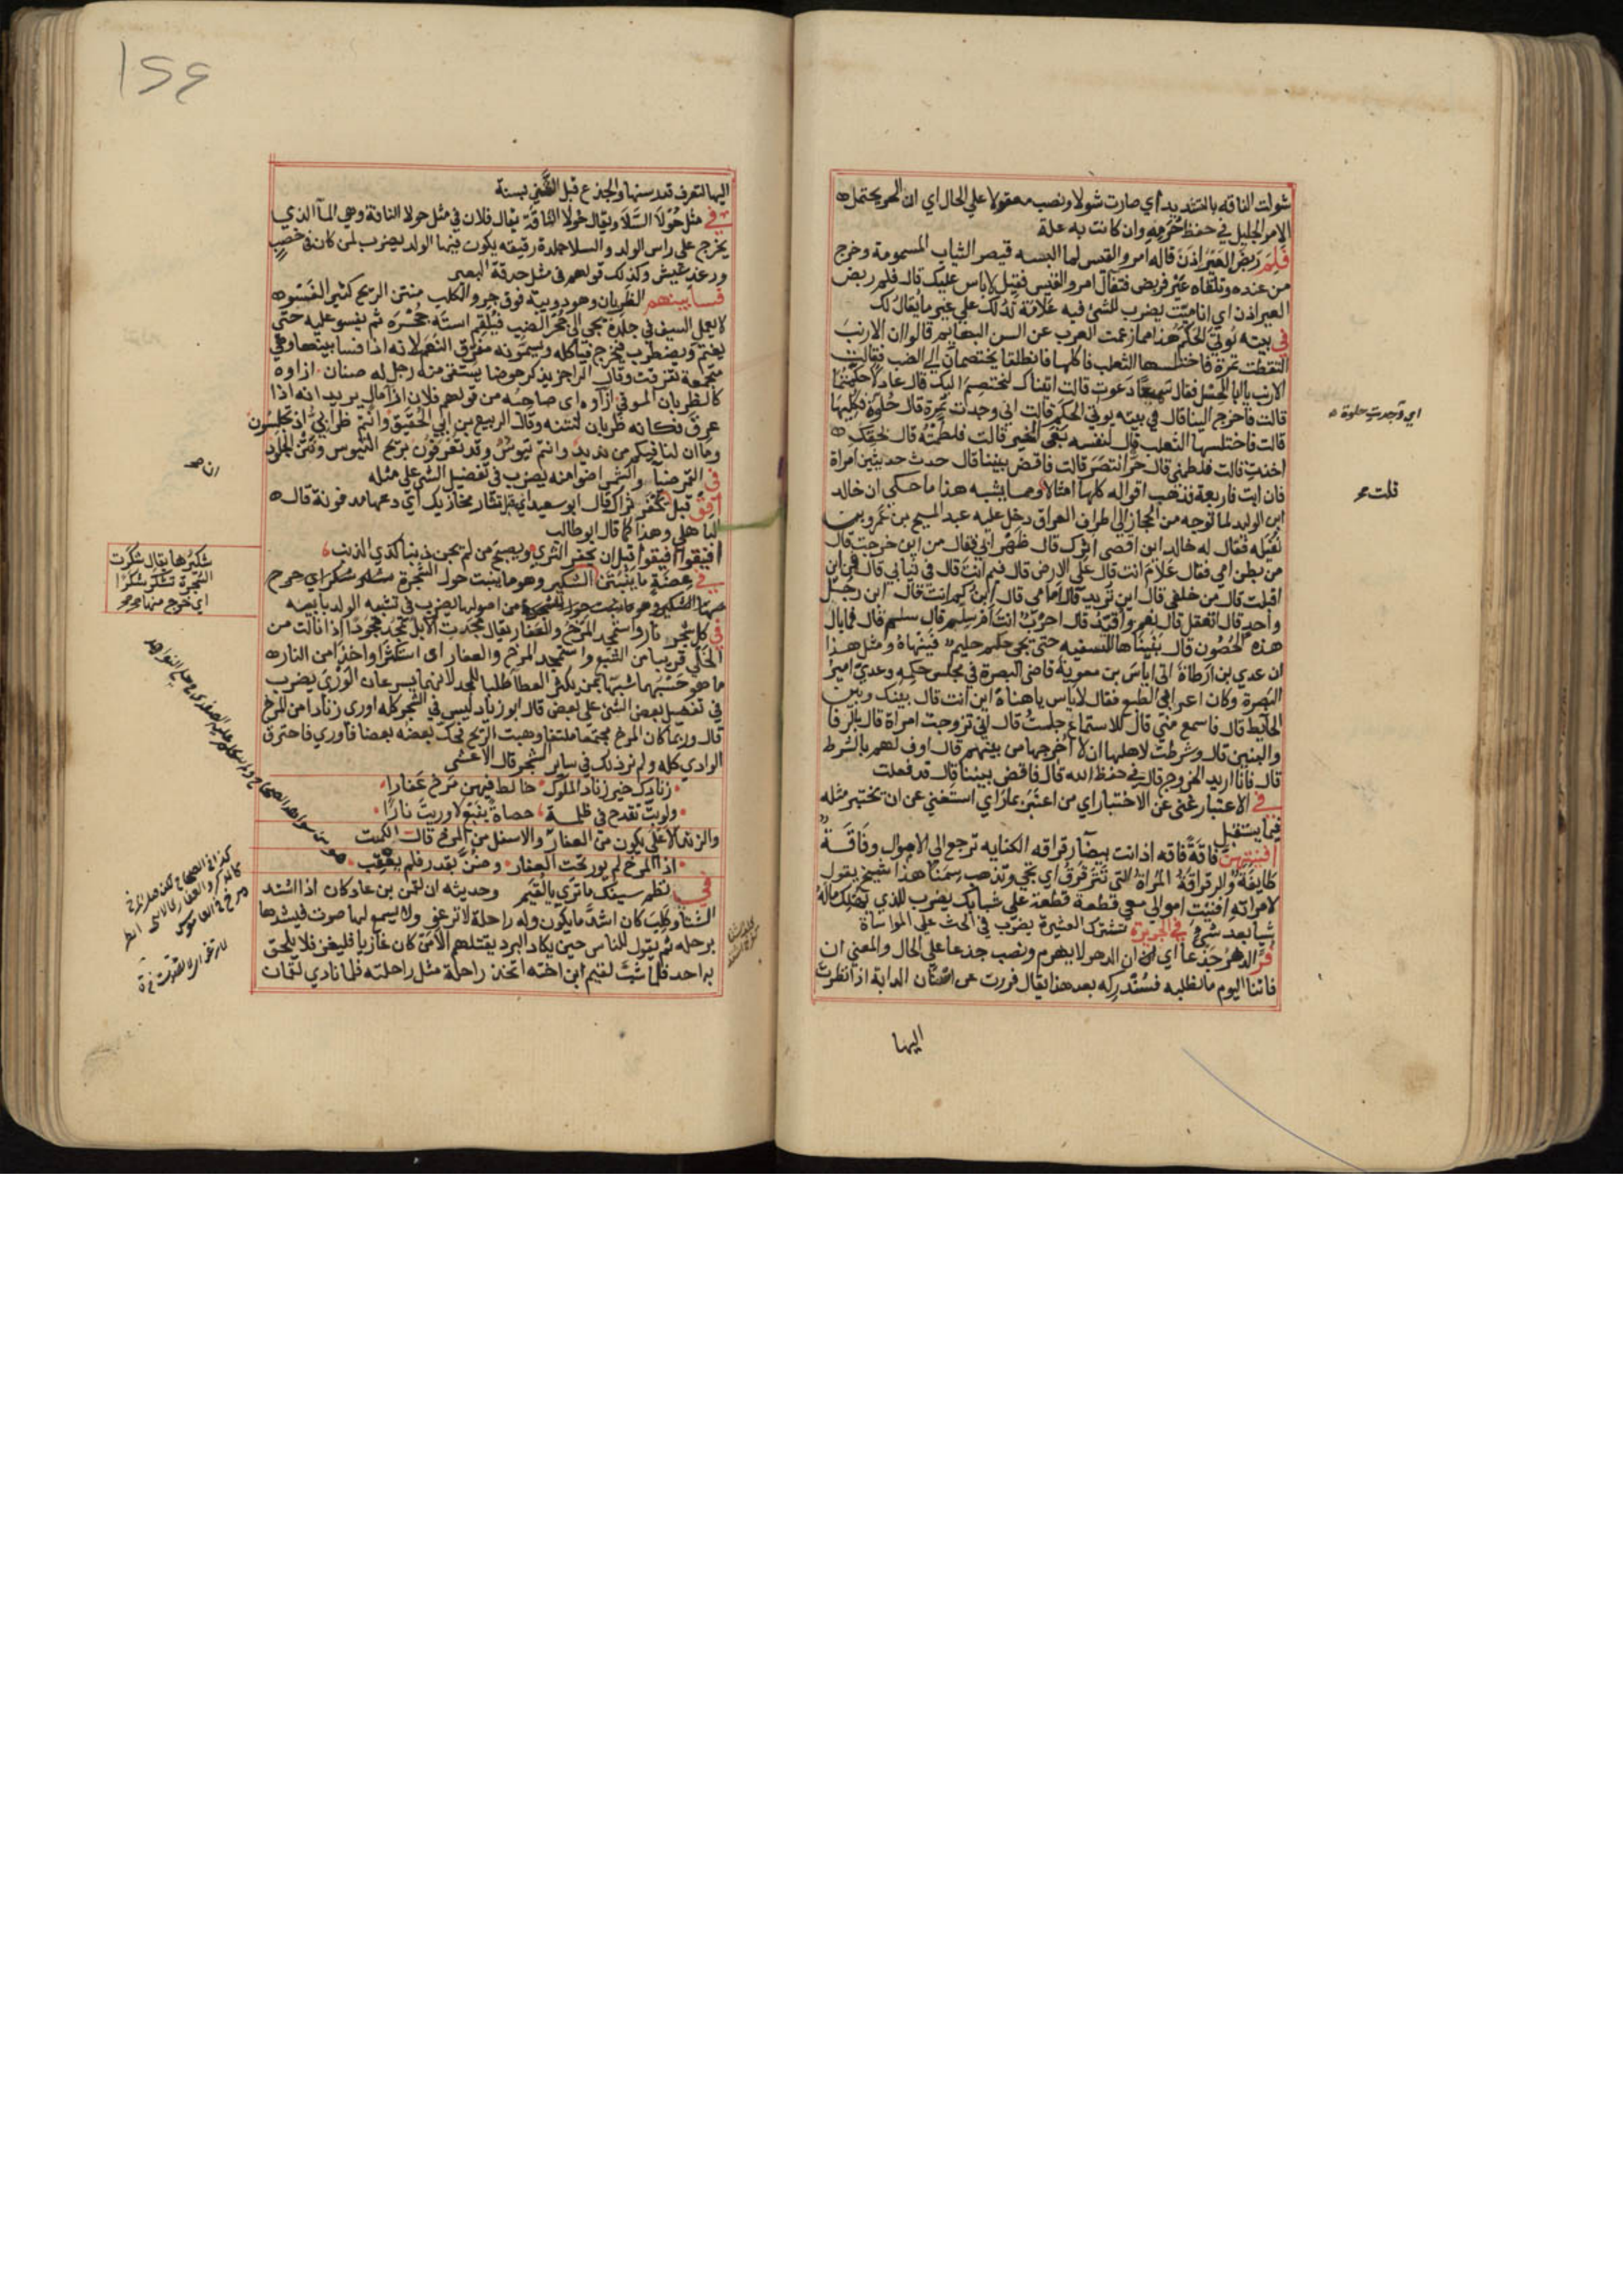 شولت الناقه بالتشديد أي صارت شولا ونصب معقولا على الحال اي ان الحر يحتمل
الامر الجليل في حفظ حُرَمِه وان كانت به علة
فَلِمَ رَبَضَ العَيْرُ اذن قاله امرو القيس لما البسه قيصر الثياب المسمومة وخرج
من عنده وتلقاه عَيْر فربض فتفآل امرو القيس فقيل لا باس عليك قال فلم ربض
العير اذن اي انا ميّت يضرب للشئ فيه علامة تدلك على غير ما يقال لك
في بيته يُوتى الحَكَم هذا مما زعمت العرب عن السن البهايم قالوا ان الارنب
التقطت تمرة فاختلسها الثعلب فاكلها فانطلقا يختصمان الي الضب فقالت
الارنب يا ابا الحِسْل فقال سميعًا دَعوت قالت اتيناك لنختصم اليك قال عادلا حكّمتما
قالت فاخرج الينا قال في بيته يوتى الحكم قالت اني وجدت تمرة قال حُلوة فكليها
قالت فاختلسها الثعلب قال لنفسه بَغَى الخير قالت فلطمته قال بحقك
اخذتِ قالت فلطمني قال حرّ انتصَرَ قالت فاقضِ بيننا قال حدث حديثين امراة
فان ابت فاربعة فذهب اقواله كلها امثالا ومما يشبه هذا ما حكي ان خالد
ابن الوليد لما توجه من الحجاز الى اطراف العراق دخل عليه عبد المسيح بن عَمرو بن
نُفَيله فقال له خالد اين اقصى اثرك قال ظَهْر ابي فقال من اين خرجت قال
من بطن امي فقال عَلامَ انت قال علَى الارض قال فيم انتَ قال في ثيابي قال فمن اين
اقبلت قال من خلفي قال اين تُريد قال امَامي قال ابنُ كم انتَ قال ابن رجُل
واحدٍ قال اتعقل قال نعم واقيّد قال احَرْبٌ انتَ ام سِلم قال سلم قال فما بال
هذه الحُصُون قال بَنَيْناها للسفيه حتى يجي حليم فينهاهُ ومثل هذا
ان عدي بن ارطاة اتى اياسَ بن معوية قاضى البصرة في مجلس حكمِه وعديّ اميرُ
البصرة وكان اعرابي الطبع فقال لاياس ياهناهُ اين انت قال بينك وبين
الحايط قال فاسمع منّي قال للاستماع جلستُ قال اني تزوجت امراة قال بالرفا
والبنين قال وشرطت لاهلها ان لا اخرجها من بينهم قال اوف لهم بالشرط
قال فانا اريد الخروج قال في حفظ الله قال فاقض بيننا قال قد فعلت
في الاعتبار غنى عن الاختبار اي من اعتبر بما رَاي استغني عن ان يختبر مثله
فيما يستقبل
افنيتهنَّ فاقَةً فاقه اذ انت بيضآ رقراقه الكنايه ترجع الى الاموال وفَاقَة
طايفة والرقراقة المرَاة التي تترقرقُ اي تجي وتذهب سِمَنًا هذا شيخ يقول
لامراته افنَيْت اموالي معي قطعةً قطعةً على شبابك يضرب للذي يُهلك مالهُ
شيا بعد شئٍ في الجريرة تشترك العشيرة يضرب في الحث على المواساة
فُرَّ الدهرُ جَذَعًا اي ان الدهر لا يهرم ونصب جذعا على الحال والمعني ان
فاتنا اليوم ما نطلبه فسَنُدركه بعد هذا يقال فررت عن اسنان الدابة اذا نظرت
اليها
اي وَجدتِ حلوة
قلت صح
١٢٤
اليها لتعرف قدر سنها والجذع قبل الثَّنِي بسنة
في مثل حُوَلآ السَّلاَ ويقال حُولآ الناقَة يقال فلان في مثل حولا الناقة وهي المآ الذي
يخرج على راس الولد والسلا جلدة رقيقه يكون فيها الولد يضرب لمن كان في خصب
ورعد عيش وكذلك قولهم في مثل حدقة البعير
فسا بينهم الظربان وهو دويبة فوق جرو الكلب منتن الريح كثير الفسو
لا يعمل السيف في جلده يجي الى جُحْر الضب فيُلقم استَه جُحْرَه ثم يفسو عليه حتى
يغتم ويضطرب فيخرج فياكله ويسمونه مفرق النعم لانه اذا فسا بينها وهي
مجتمعة تفرقت وقال الراجز يذكر حوضا يستقى منه رجل له صنان ازاوه
كالظربان الموفي ازآوه اى صاحبه من قولهم فلان ازآ مال يريد انه اذا
عرق فكانه ظربان لنتنه وقال الربيع بن ابي الحُقَيْقِ وانتم ظرَابيُّ اذ تجلسون
وما ان لنا فيكم من نديد وانتم تيوسٌ وقد تعرفون بريح التيوس ونتن الجلود
في القمر ضيآ والشمس اضوا منه يضرب في تفضيل الشي على مثله
افق قبل ان يُحفَر ثراك قال ابو سعيد اي قبل ان تثار مخازيك اي دعها مدفونة قال
الباهلي وهذا كما قال ابو طالب
افيقوا افيقوا قبل ان يحفر الثري ويصبح من لم يجن ذنبا كذي الذنب
في عِضَةٍ ما يَنْبُتَنَّ الشكير وهو ما ينبت حول الشجرة
من اصولها يضرب في تشبه الولد بابيه
في كل شجر نار واستمجد المَرْخُ والعَفار يقال مجَدَت الابل تمجُد مجودًا اذا نالت من
الخلَى قريبا من الشبع واستمجد المرخ والعفار اى استكثرا واخذا من النار
ما هو حَسْبُهما شبّها بمن يكثر العطا طلبا للمجد لانهما يسرعان الوَرْيَ يضرب
في تفضيل بعض الشئ على بعض قال ابو زياد ليس في الشجر كله اورى زنادا من المرخ
قال وربما كان المرخ مجتمعا ملتفا وهبت الريح فحك بعضه بعضا فاوري فاحترق
الوادي كله ولم نر ذلك في ساير الشجر قال الاعشى
زنادك خير زناد الملوك خالط فيهن مَرخ عَفارا
ولو بتّ تقدح في ظلمة حصاةً بنَبْع لاوريتَ نارًا
والزند الاعلى يكون من العفار والاسفل من المرخ قال الكميت
اذا المرخ لم يور تحت العفار وضُنَّ بقدر فلم يُعقب
في نظم سيفك ما تري يا لُقَيم وحديثه ان لقمن بن عاد كان اذا اشتد
الشتا وكَلِبَ كان اشدَّ ما يكون وله راحلة لا ترغو ولا يسمع لها صوت فيشدها
برحله ثم يقول للناس حين يكاد البرد يقتلهم الا من كان غازيا فليغز فلا يلحق
به احد فلما شبّ لقيم ابن اخته اتخذ راحلة مثل راحلته فلما نادي لقمان
ان صح
شكيرُها يقال شكرت
الشجرة تشكر شكرًا
اي خرج منها صح